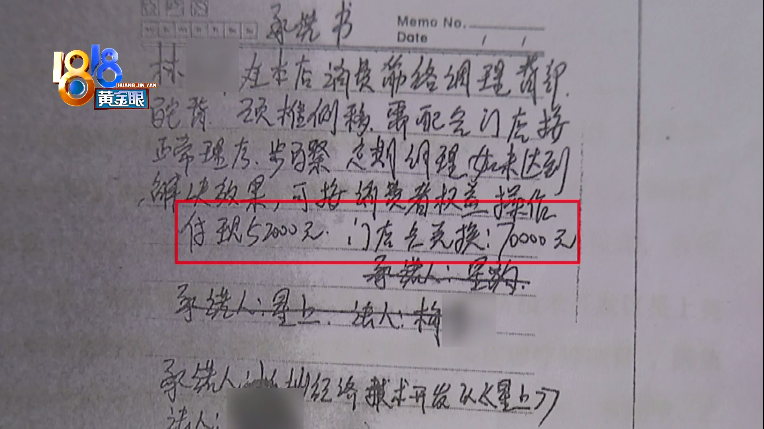 承诺书
Memo No.
Date / /
1818
HUANGJIN YAN
黄金眼
林 在本店消费筋络调理背部
驼背. 颈椎侧移. 需配合门店按
正常理疗. 步骤 定期调理 如未达到
解决效果, 可按消费者权益操作
付现52000元. 门店兑换: 70000元
承诺人: 星
承诺人: 星上. 法人:
承诺人: 经络技术开发 《星上》
法人: